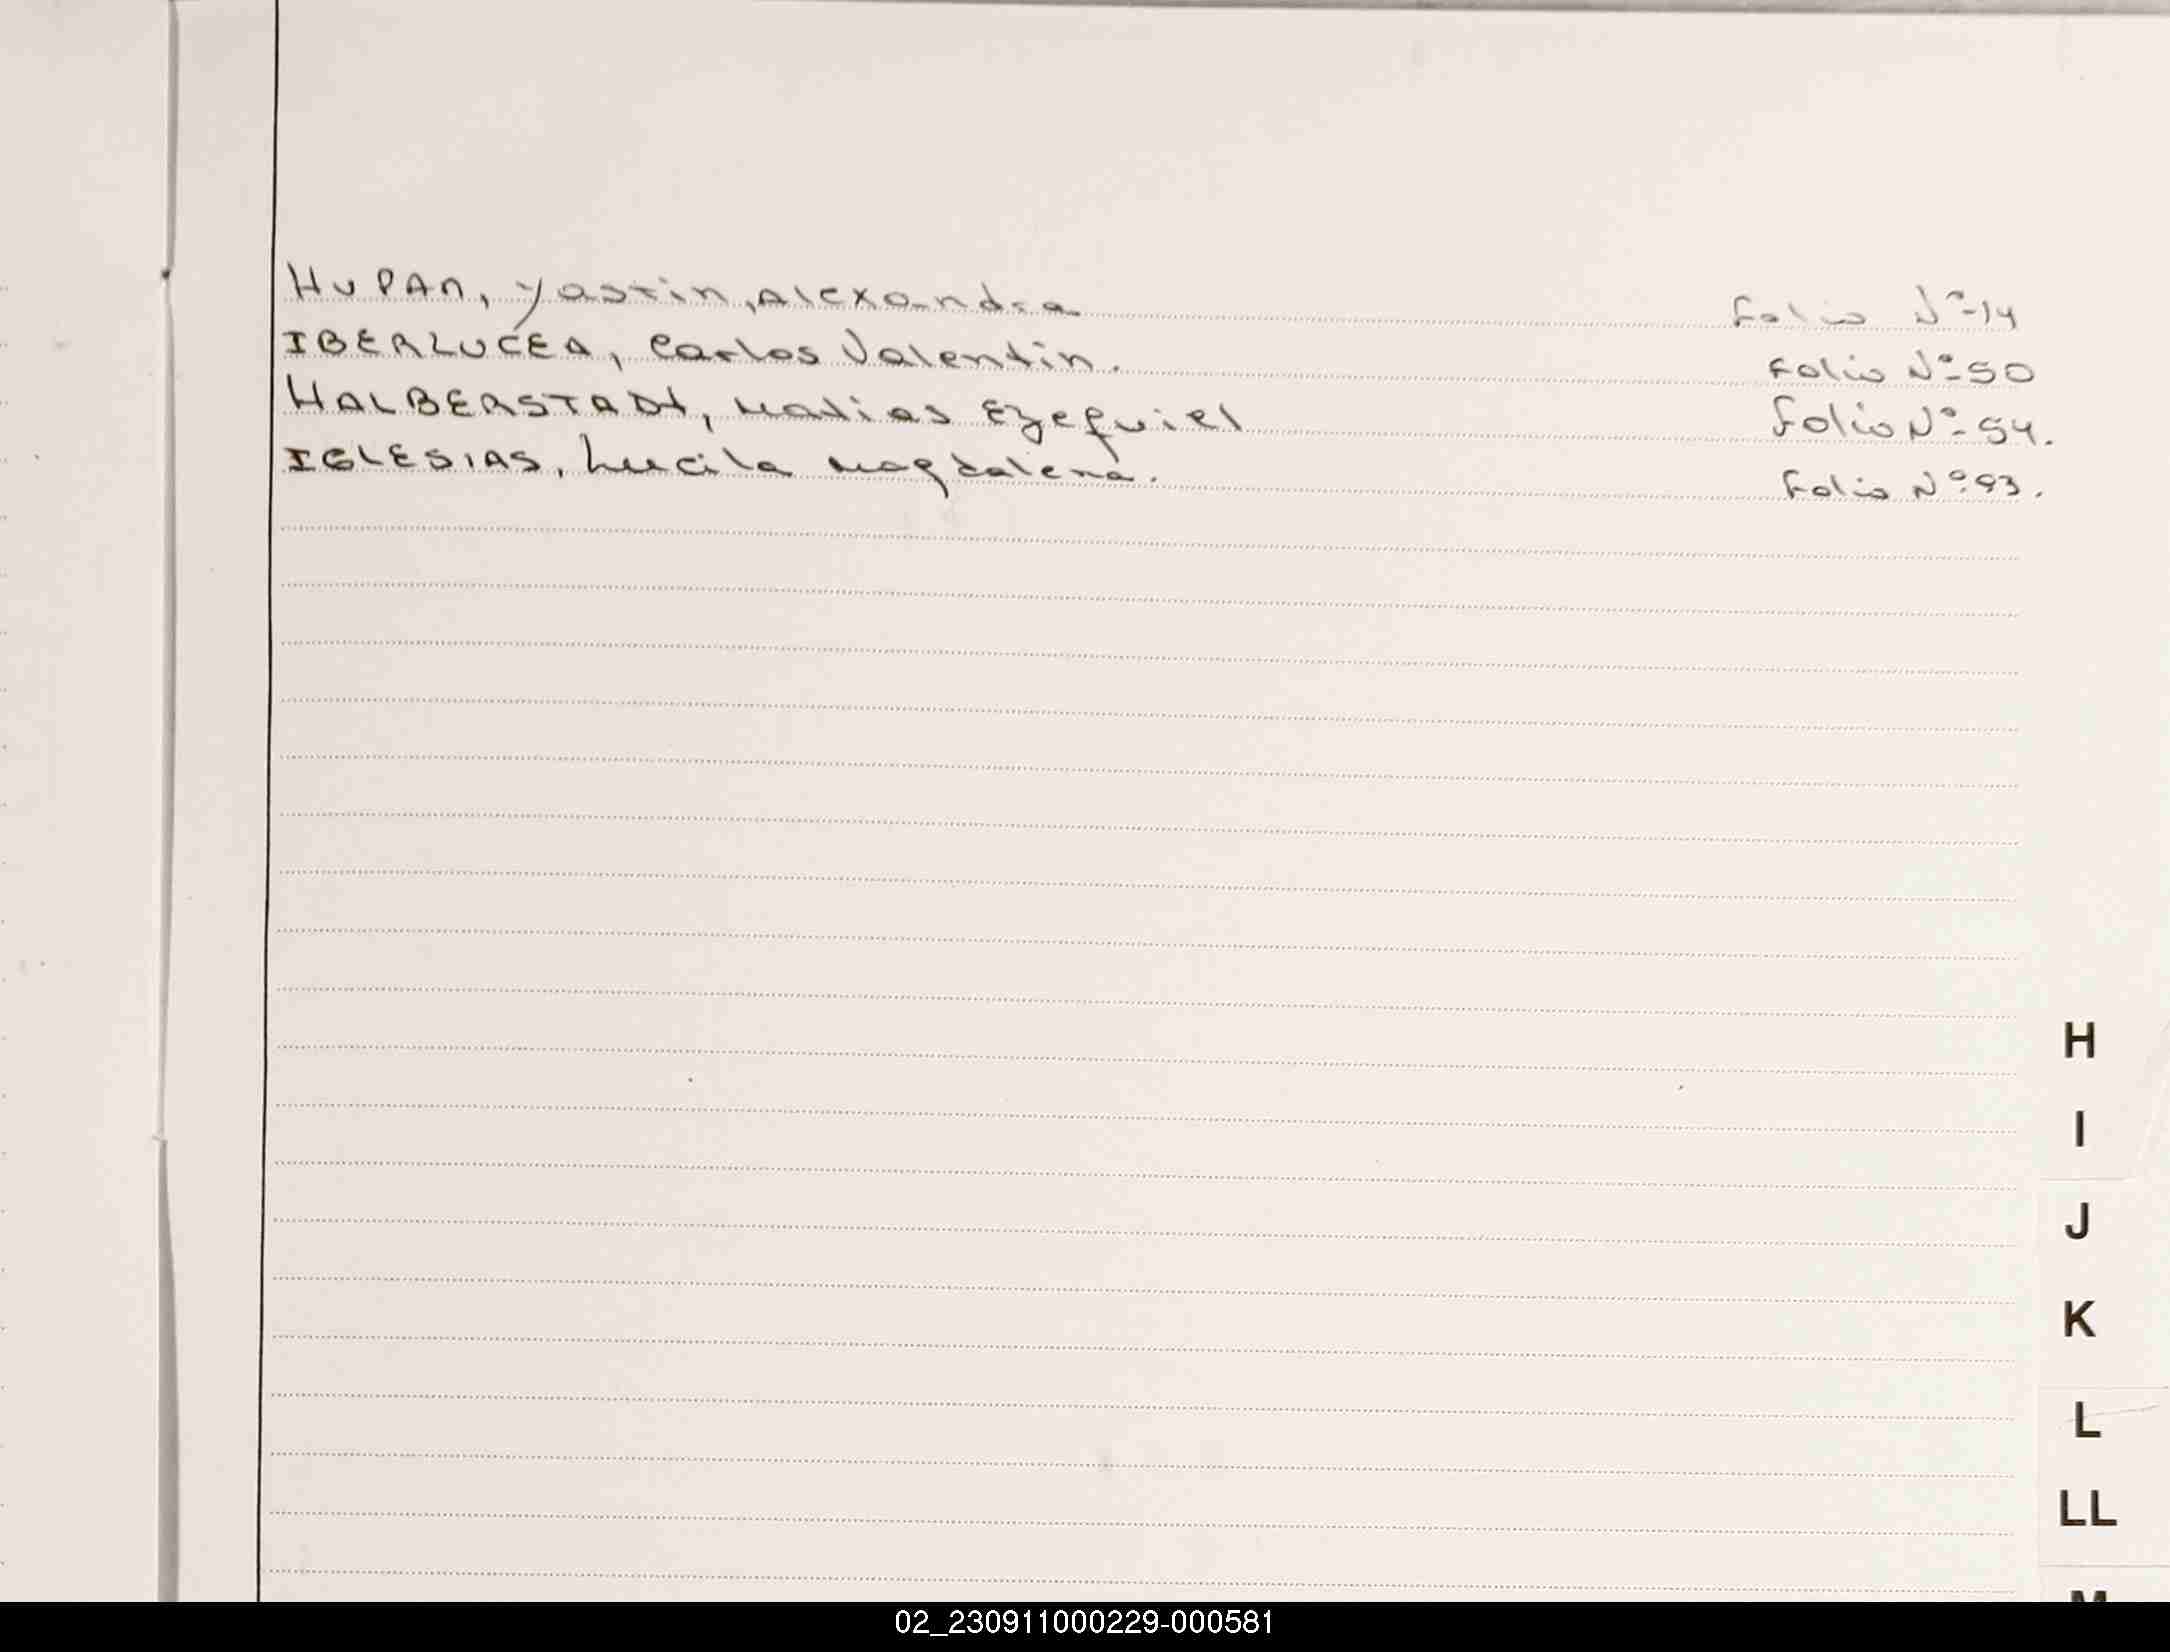 HUPAN, Yastin, Alexandra Folio Nº-14
IBERLUCEA, Carlos Valentin. Folio Nº-50
HALBERSTADT, Matias Ezequiel Folio Nº-54.
IGLESIAS, Lucila Magdalena. Folio Nº-93.
H
I
J
K
L
LL
M
02_230911000229-000581